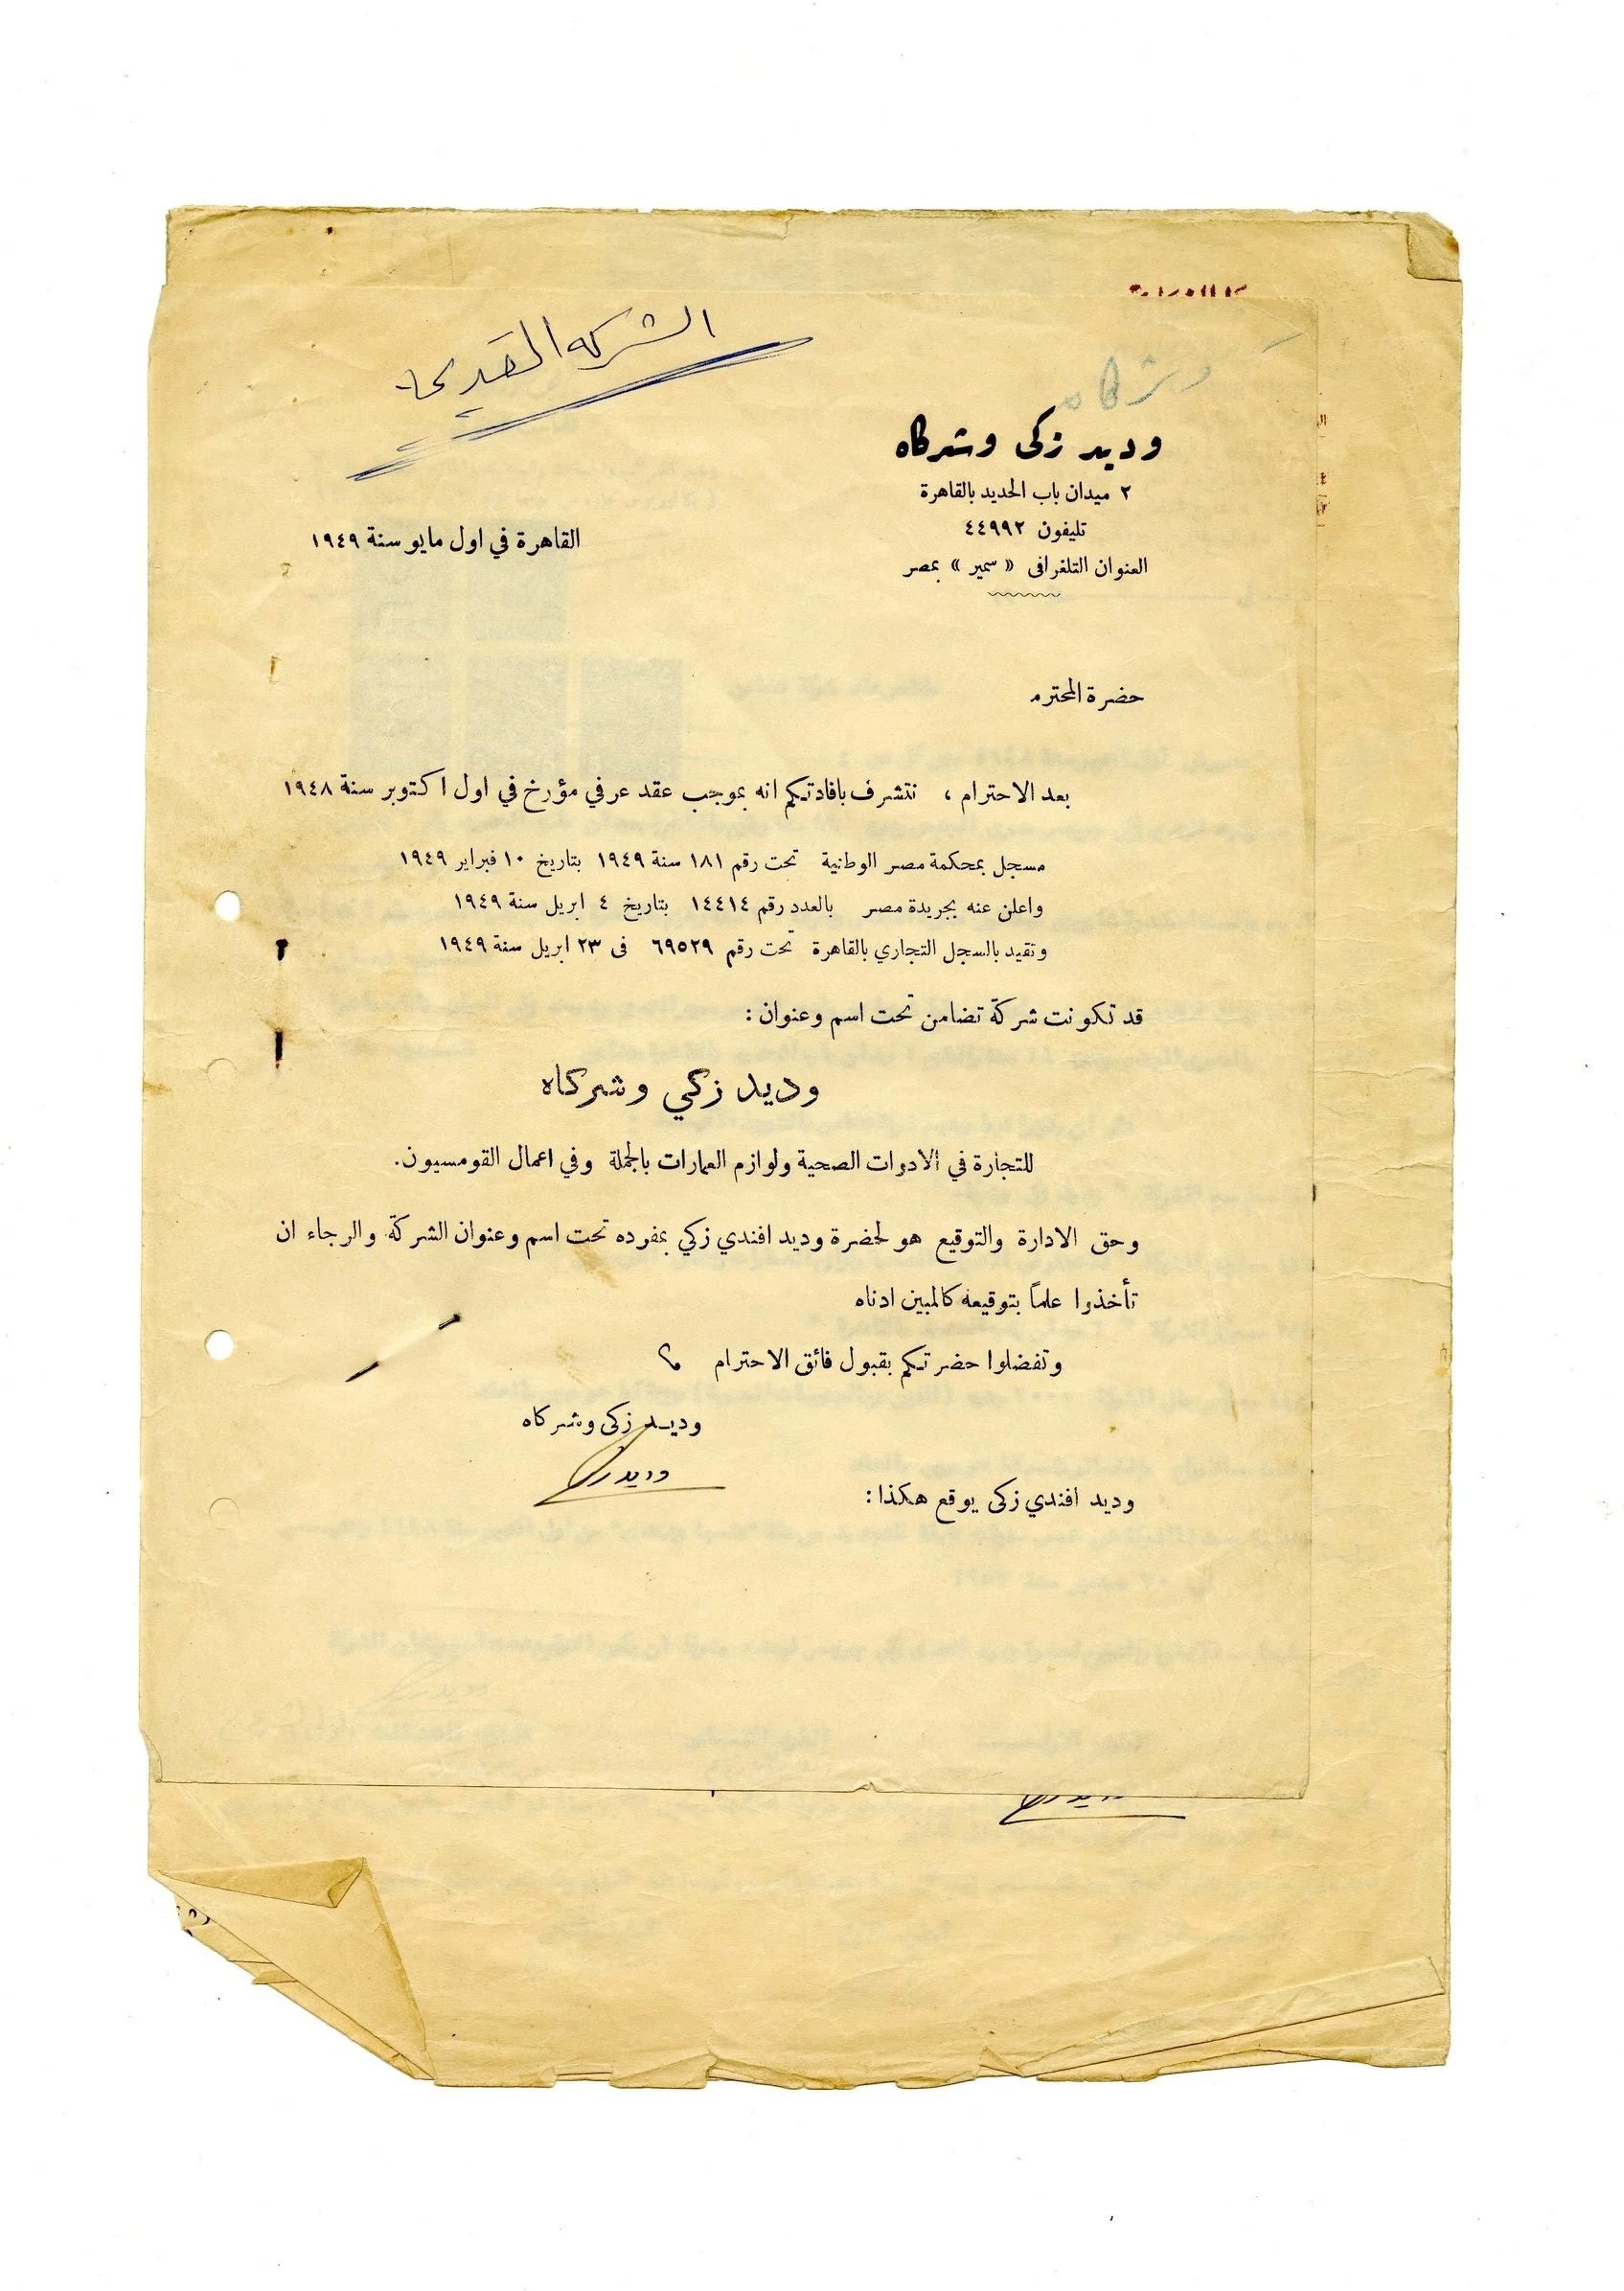 الشركة القديمة
وشركاه
وديد زكى وشركاه
٢ ميدان باب الحديد بالقاهرة
تليفون ٤٤٩٩٢
العنوان التلغرافى « سمير » بمصر
القاهرة في اول مايو سنة ١٩٤٩
حضرة المحترم
بعد الاحترام ، نتشرف بافادتكم انه بموجب عقد عرفي مؤرخ في اول اكتوبر سنة ١٩٤٨
مسجل بمحكمة مصر الوطنية تحت رقم ١٨١ سنة ١٩٤٩ بتاريخ ١٠ فبراير ١٩٤٩
واعلن عنه بجريدة مصر بالعدد رقم ١٤٤١٤ بتاريخ ٤ ابريل سنة ١٩٤٩
وتقيد بالسجل التجاري بالقاهرة تحت رقم ٦٩٥٢٩ فى ٢٣ ابريل سنة ١٩٤٩
قد تكونت شركة تضامن تحت اسم وعنوان :
وديد زكي وشركاه
للتجارة في الادوات الصحية ولوازم العمارات بالجملة وفي اعمال القومسيون.
وحق الادارة والتوقيع هو لحضرة وديد افندي زكي بمفرده تحت اسم وعنوان الشركة والرجاء ان
تأخذوا علماً بتوقيعه كالمبين ادناه
وتفضلوا حضرتكم بقبول فائق الاحترام
وديد زكى وشركاه
وديد افندي زكى يوقع هكذا :